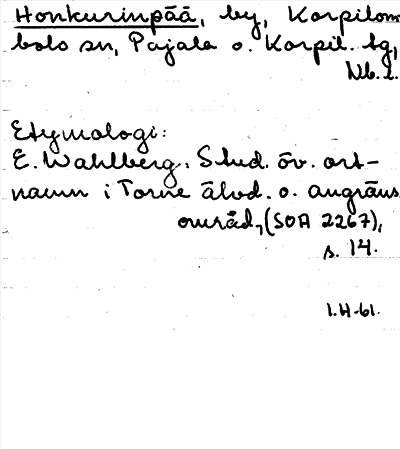 Honkurinpää, by, Korpilom
bolo sn, Pajala o. Korpil. tg,
Nb. l.
Etymologi:
E. Wahlberg, Stud. öv. ort-
namn i Torne älvd. o. angräns.
område, (SOA 2267),
s. 14.
I.H-61.